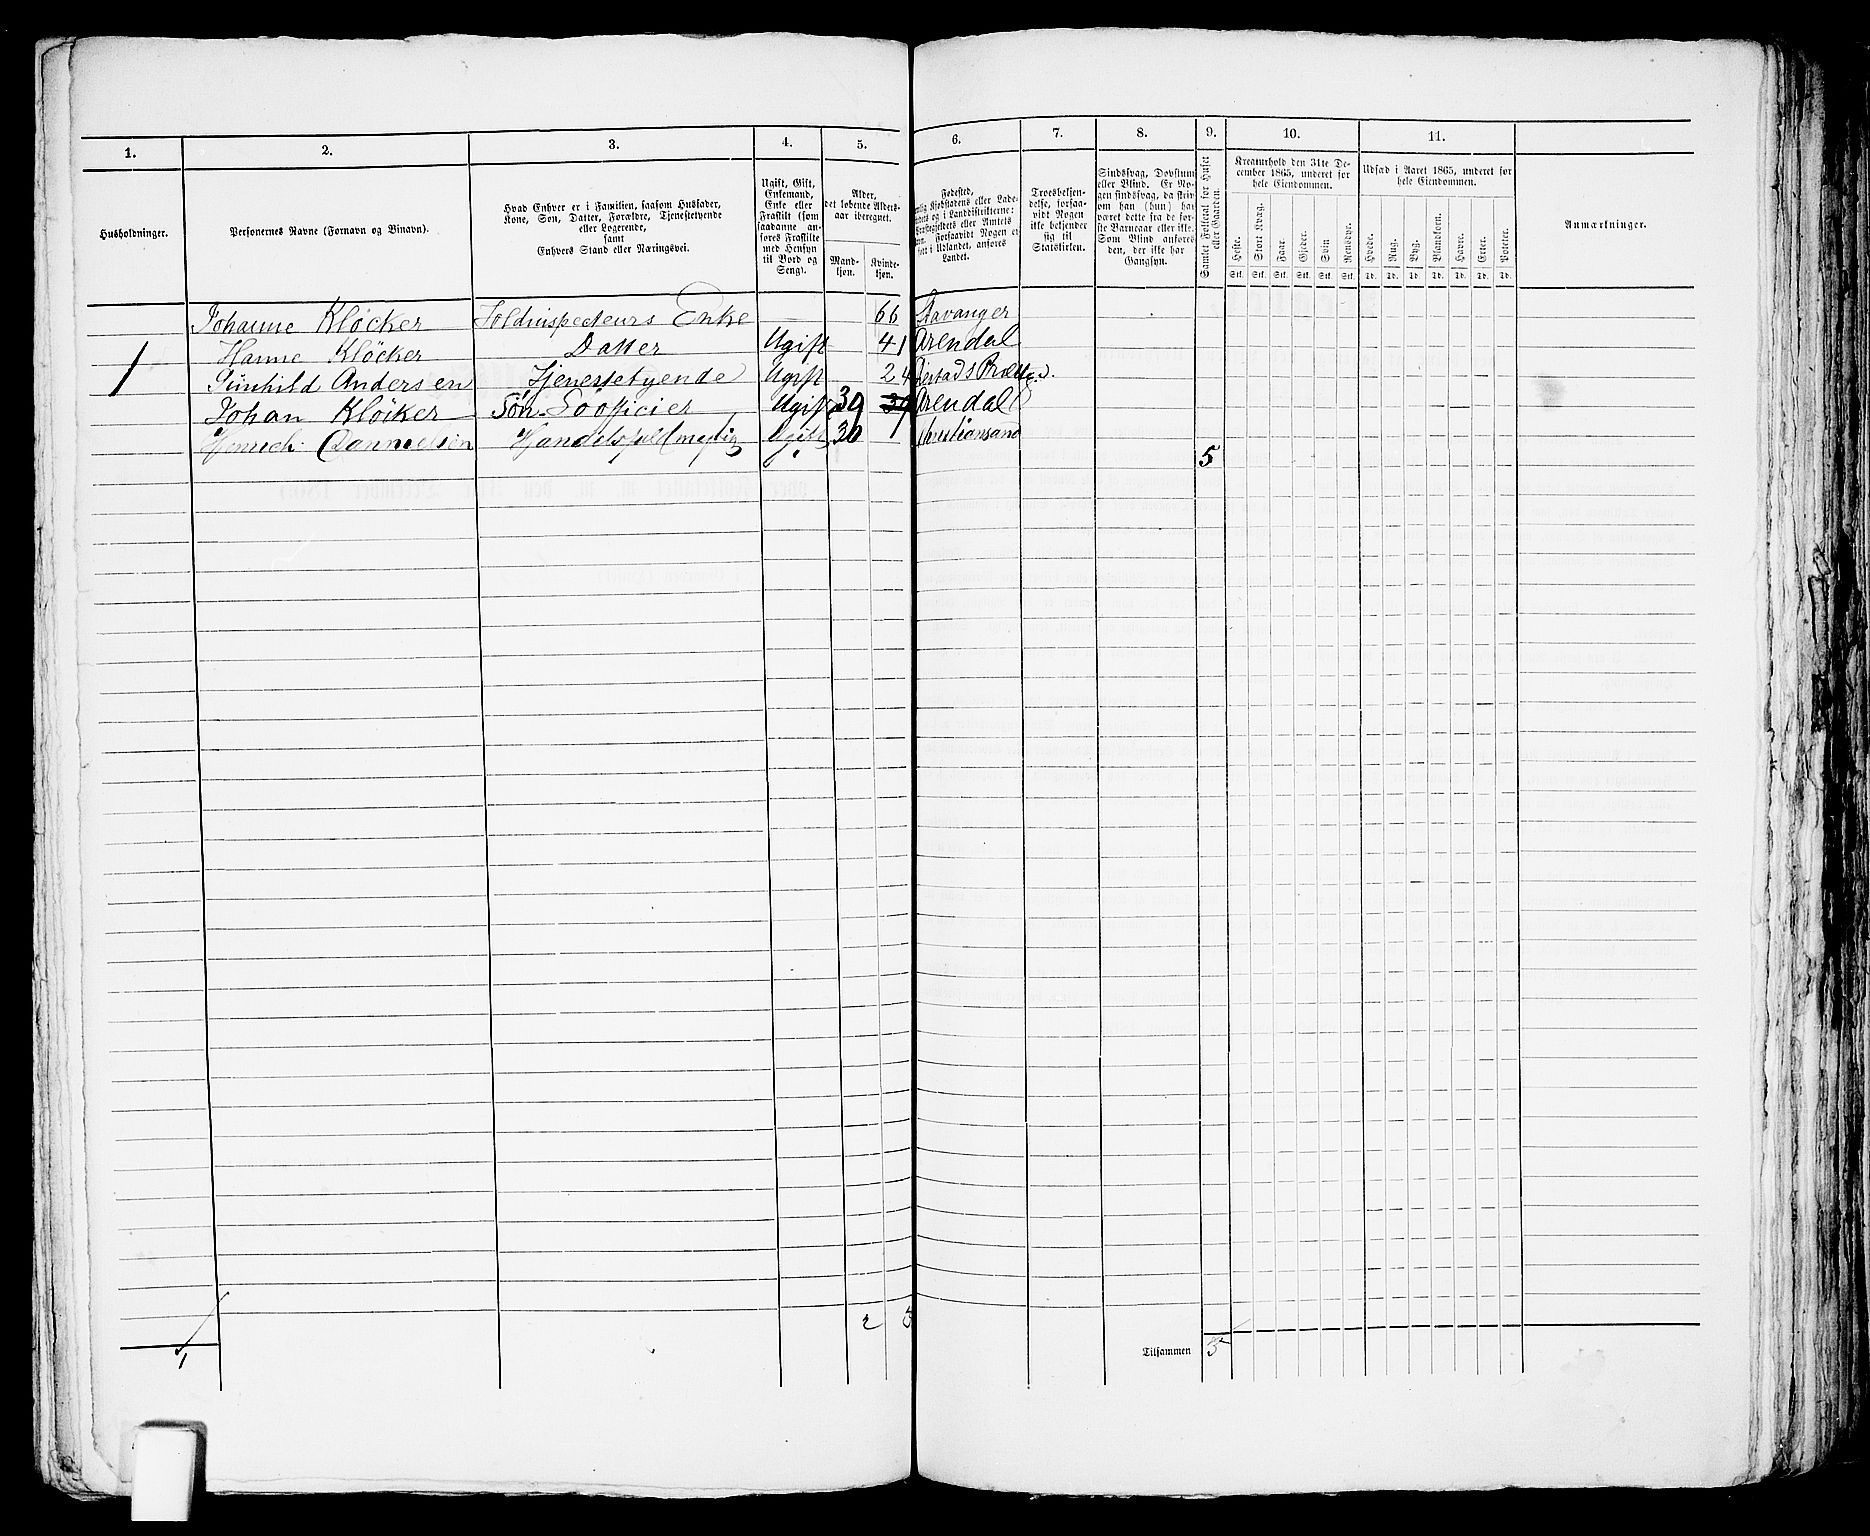 1. 2. 3. 4. 5. 6. 7. 8. 9. 10. 11.
Husholdninger.
Personernes Navne (Fornavn og Binavn).
Hvad Enhver er i Familien, saasom Husfader,
Kone, Søn, Datter, Forældre, Tjenestetyende
eller Logerende,
samt
Enhvers Stand eller Næringsvei.
Ugift, Gift,
Enkemand,
Enke eller
Fraskilt (som
saadanne an-
føres Fraskilte
med Hensyn
til Bord og
Seng).
Alder,
det løbende Alders-
aar iberegnet.
Mand-
kjøn.
Kvinde-
kjøn.
Fødested,
Kjøbstadens eller Lade-
stedets og i Landdistrikterne:
Præstegjeldets eller Amtets
Navn. Forsaavidt Nogen er
født i Udlandet, anføres
Landet.
Troesbekjen-
delse, forsaa-
vidt Nogen
ikke bekjender
sig til
Statskirken.
Sindssvag, Døvstum
eller Blind. Er No-
gen sindssvag, da skriv
om han (hun) har
været dette fra de før-
ste Barneaar eller ikke.
Som Blind anføres
den, der ikke har
Gangsyn.
Samlet Folketal for Huset
eller Gaarden.
Kreaturhold den 31te De-
cember 1865, underet for
hele Eiendommen.
Heste. Stort Kvæg. Faar. Gjeder. Svin Rensdyr.
Stk. Stk. Stk. Stk. Stk. Stk.
Udsæd i Aaret 1865, underet for
hele Eiendommen.
Hvede. Rug. Byg. Blandkorn. Havre. Erter. Poteter.
Td. Td. Td. Td. Td. Td. Td.
Anmærkninger.
Johanne Kløcker Toldinspecteurs Enke 66 Stavanger
1 Hanne Kløcker Datter Ugift 41 Arendal
Gunhild Andersen Tjenestetyende Ugift 24
Johan Kløcker Søn Søofficier Ugift 39 39 Arendal
Handelsfuldmegtig Ugift 30 Christiansand
5
2 3
1 Tilsammen 5